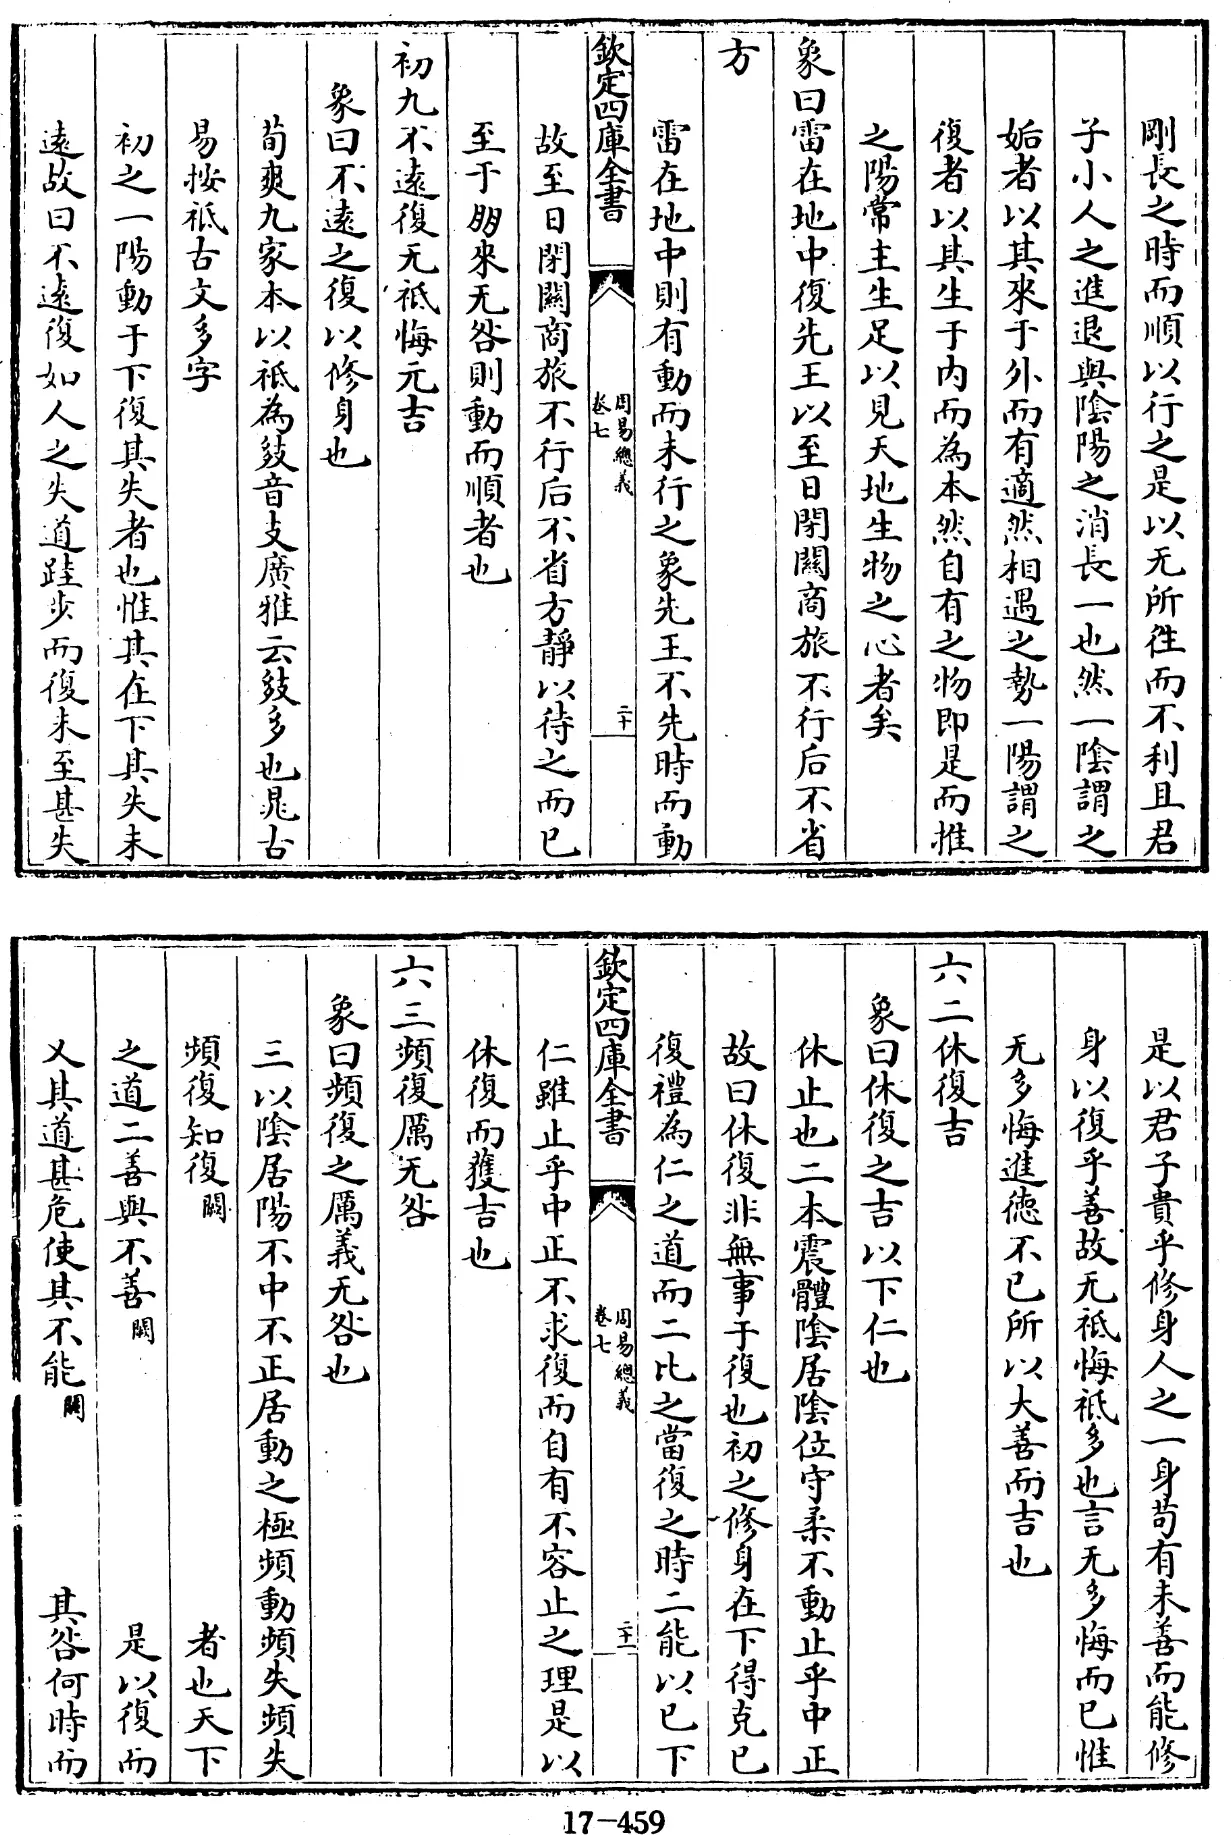 剛長之時而順以行之是以无所徃而不利且君
子小人之進退與陰陽之消長一也然一陰謂之
姤者以其來于外而有適然相遇之勢一陽謂之
復者以其生于内而為本然自有之物即是而推
之陽常主生足以見天地生物之心者矣
象曰雷在地中復先王以至日閉關商旅不行后不省
方
雷在地中則有動而未行之象先王不先時而動
欽定四庫全書
周易總義
卷七
二十
故至日閉關商旅不行后不省方靜以待之而已
至于朋來无咎則動而順者也
初九不遠復无祗悔元吉
象曰不遠之復以修身也
荀爽九家本以祗為䟗音支廣雅云䟗多也晁古
易按祗古文多字
初之一陽動于下復其失者也惟其在下其失未
遠故曰不遠復如人之失道跬步而復未至甚失
是以君子貴乎修身人之一身苟有未善而能修
身以復乎善故无祗悔祗多也言无多悔而已惟
无多悔進德不已所以大善而吉也
六二休復吉
象曰休復之吉以下仁也
休止也二本震體陰居陰位守柔不動止乎中正
故曰休復非無事于復也初之修身在下得克已
復禮為仁之道而二比之當復之時二能以已下
欽定四庫全書
周易總義
卷七
二十一
仁雖止乎中正不求復而自有不容止之理是以
休復而獲吉也
六三頻復厲无咎
象曰頻復之厲義无咎也
三以陰居陽不中不正居動之極頻動頻失頻失
頻復知復闕 者也天下
之道二善與不善闕 是以復而
乂其道甚危使其不能闕 其咎何時而
17-459